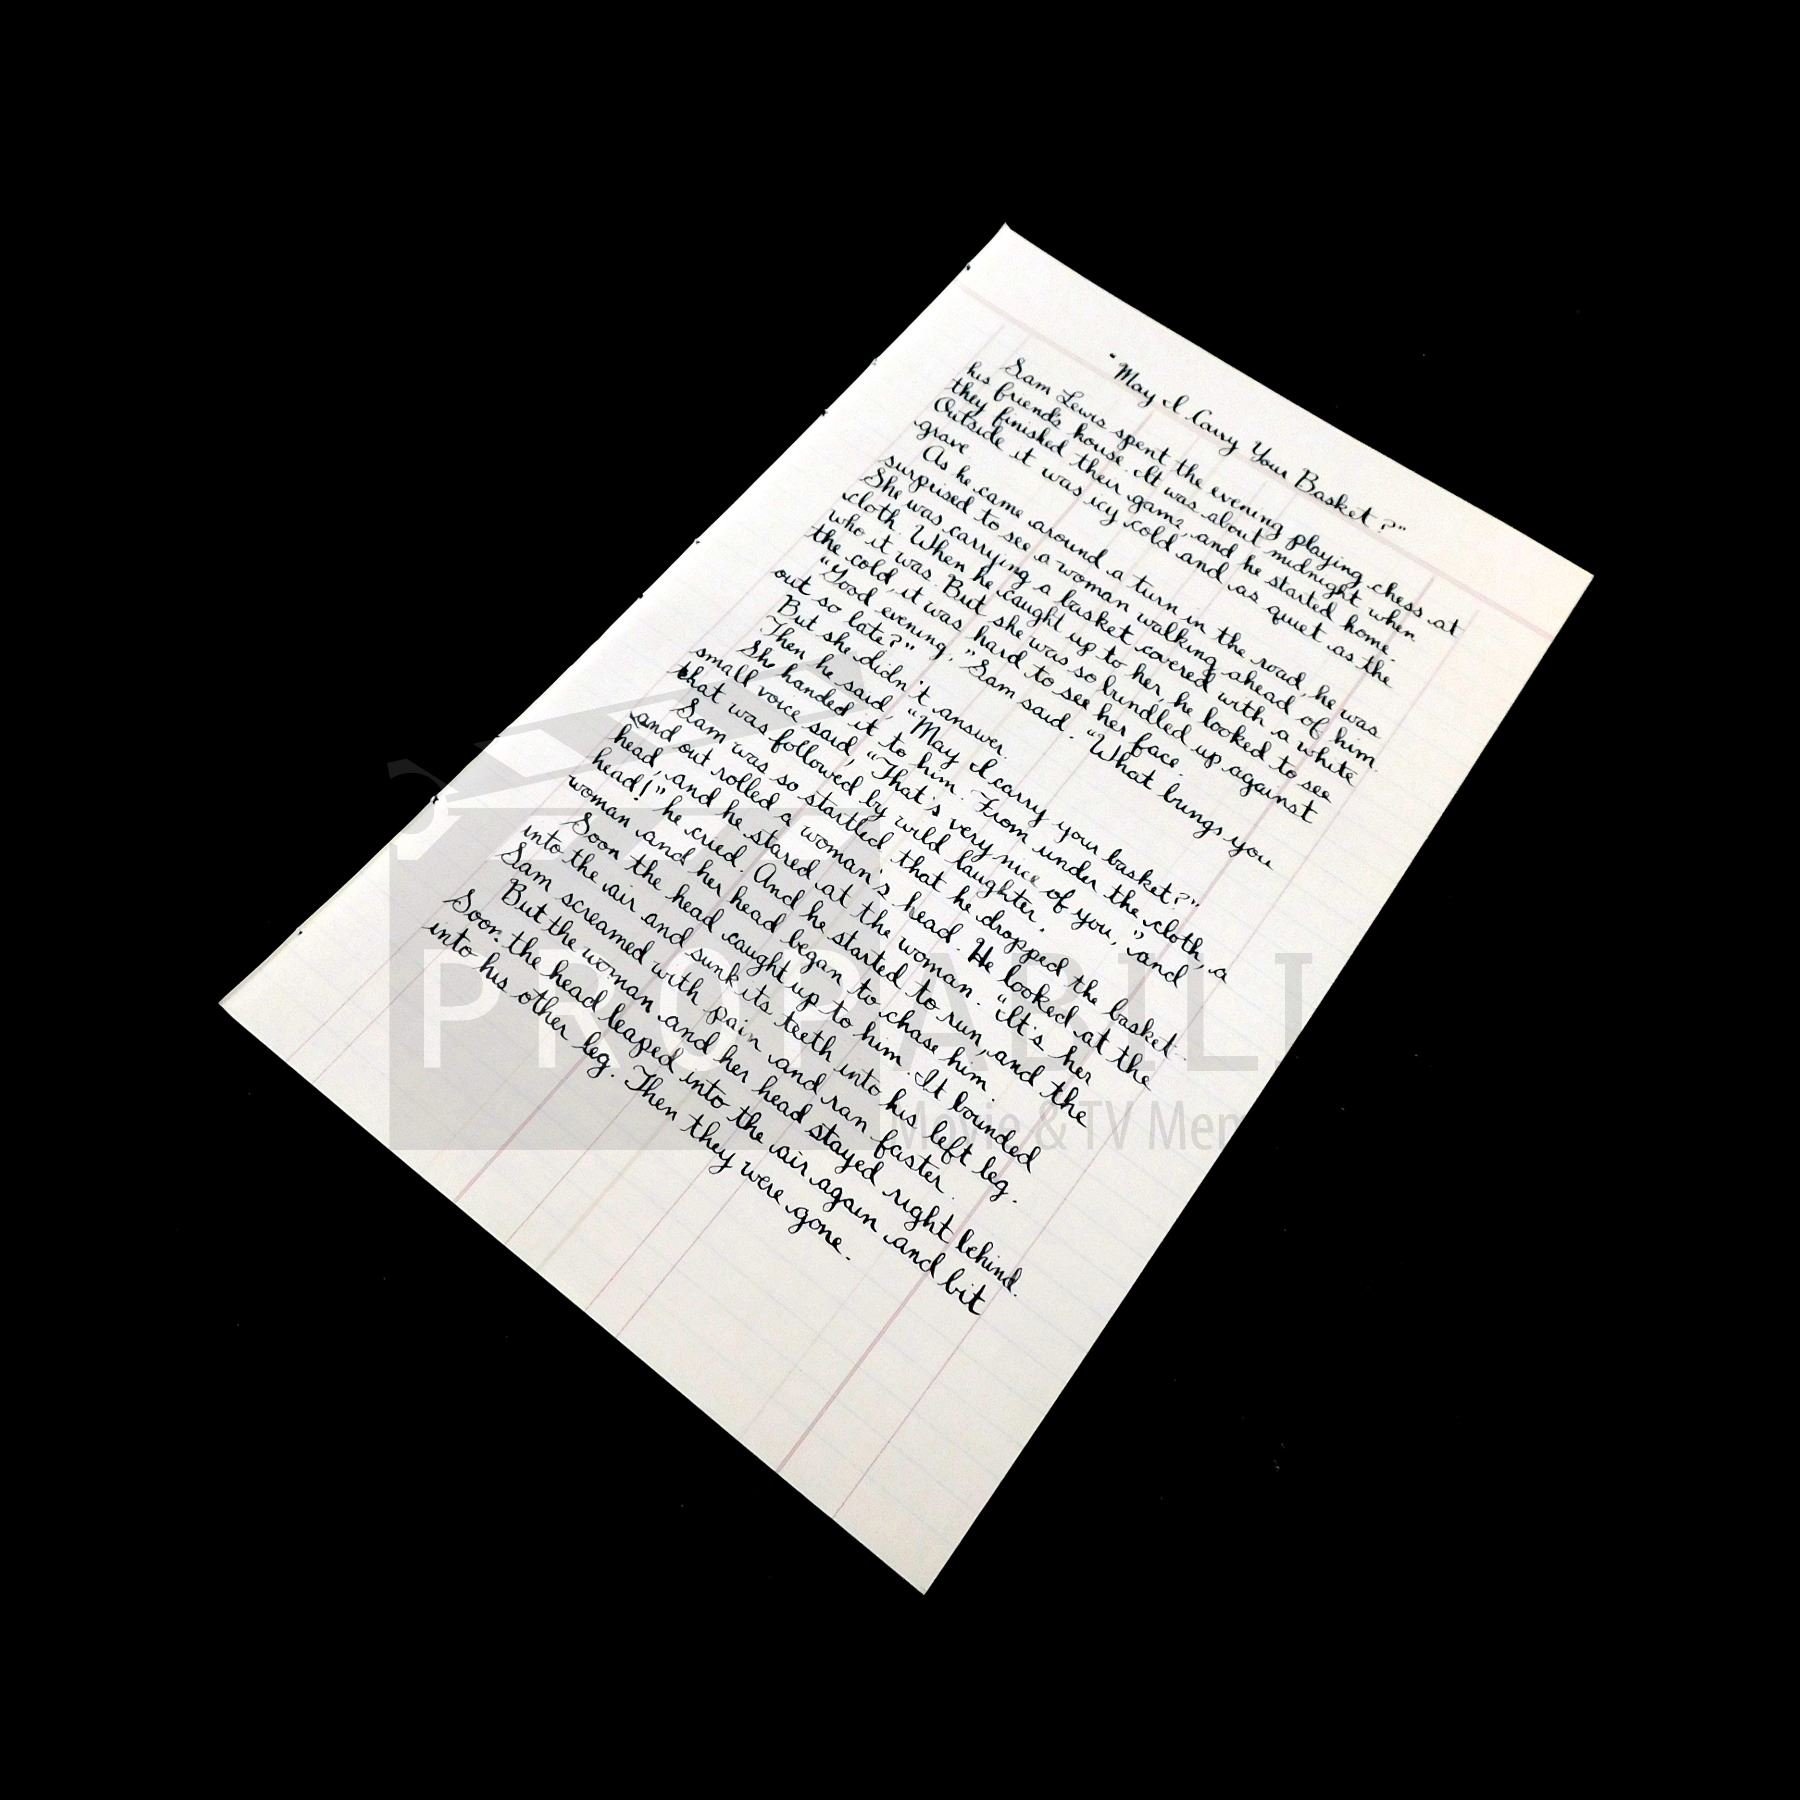 "May I Carry Your Basket?"
Sam Lewis spent the evening playing chess at
his friend's house. It was about midnight when
they finished their game, and he started home.
Outside it was icy cold and as quiet as the
grave
As he came around a turn in the road, he was
surprised to see a woman walking ahead of him.
She was carrying a basket covered with a white
cloth. When he caught up to her, he looked to see
who it was. But she was so bundled up against
the cold, it was hard to see her face.
"Good evening," Sam said. "What brings you
out so late?"
But she didn't answer.
Then he said, "May I carry your basket?"
She handed it to him. From under the cloth, a
small voice said, "That's very nice of you," and
that was followed by wild laughter.
Sam was so startled that he dropped the basket -
and out rolled a woman's head. He looked at the
head, and he stared at the woman. "It's her
head!" he cried. And he started to run, and the
woman and her head began to chase him.
Soon the head caught up to him. It bounded
into the air and sunk its teeth into his left leg.
Sam screamed with pain and ran faster.
But the woman and her head stayed right behind.
Soon the head leaped into the air again and bit
into his other leg. Then they were gone.
PROPABILI
Movie & TV Mem